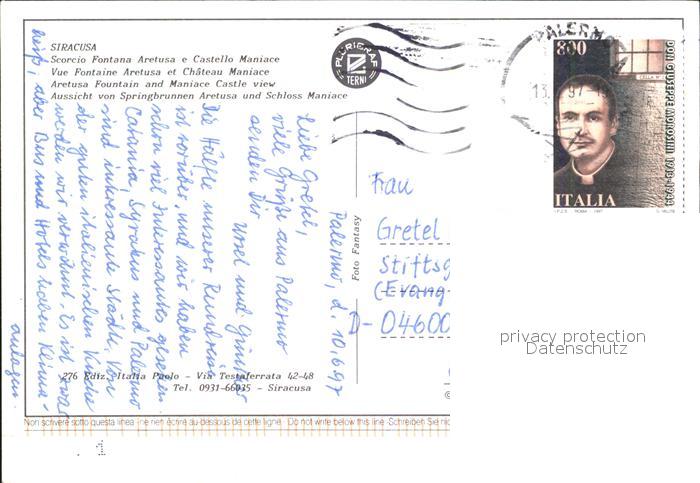 SIRACUSA
Scorcio Fontana Aretusa e Castello Maniace
Vue Fontaine Aretusa et Château Maniace
Aretusa Fountain and Maniace Castle view
Aussicht von Springbrunnen Aretusa und Schloss Maniace
PLURIGRAF
TERNI
PALERMO
13.
97
800
DON GIUSEPPE MOROSINI 1913-1944
ITALIA
I.P.Z.S. ROMA 1997
Palermo, d. 10.6.97
Liebe Gretel,
viele Grüße aus Palermo
senden Dir
Ursel und Günter
Die Hälfte unserer Rundreise
ist vorüber, und wir haben
schon viel Interessantes gesehen.
Catania, Syrakus und Palermo
sind interessante Städte. Von
der guten italienischen Küche
werden wir verwöhnt. Es ist zwar
heiß, aber Bus und Hotels haben Klima-
anlagen
Foto Fantasy
Frau
Gretel
Stiftsg
(Evang
D-04600
privacy protection
Datenschutz
276 Ediz. Italia Paolo - Via Testaferrata 42-48
Tel. 0931-66035 - Siracusa
Non scrivere sotto questa linea - ne rien écrire au-dessous de cette ligne - Do not write below this line - Schreiben Sie nic
. 1